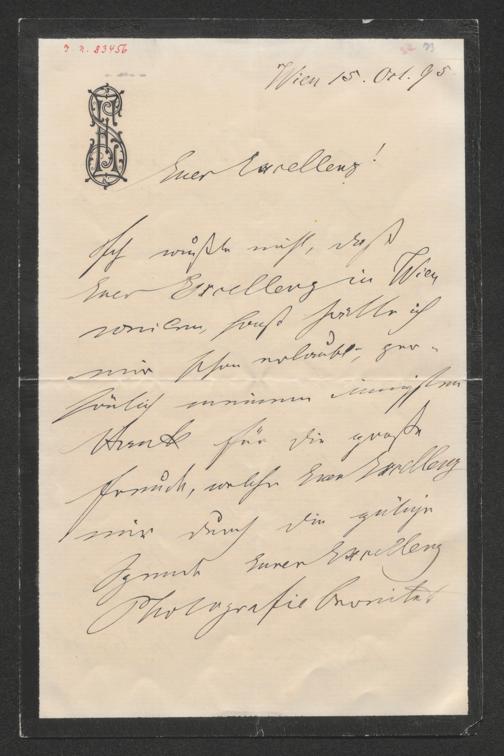 I. N. 83456
Wien 15. Oct. 95.
Euer Excellenz!
Ich wußte nicht, daß
Euer Excellenz in Wien
sonst hätte ich
mir schon erlaubt, per-
sönlich meinen innigsten
Dank für die große
Freude, welche Euer Excellenz
mir durch die gütige
Spende Eurer Excellenz
Photografie bereitet